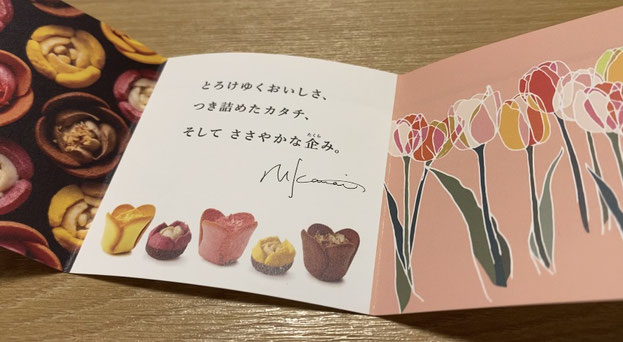 とろけゆくおいしさ、
つき詰めたカタチ、
そして ささやかな企み。
たくら